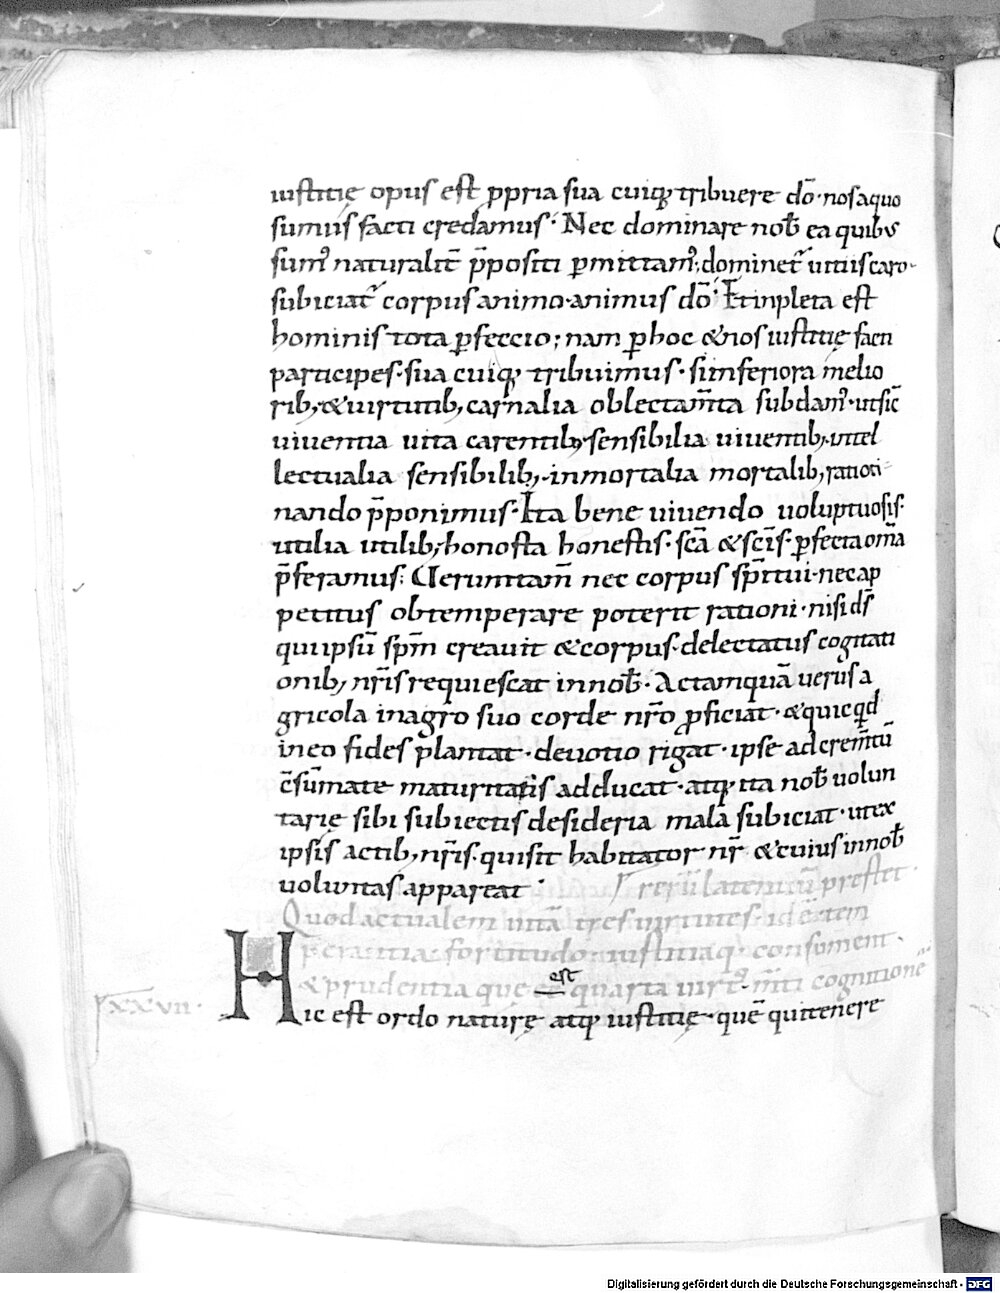 iustitię opus est ꝓpria sua cuiq; tribuere dō· nos aquo
sumus facti credamus· Nec dominare nob̄ ea quibus
sum᷒ naturalit̄ p̄positi ꝑmittam᷒; dominet᷑ uirtus caro·
subiciat᷑ corpus animo· animus dō· Et inpleta est
hominis tota ꝑfeccio; nam ꝑ hoc & nos iustitię facti
participes· sua cuiq; tribuimus· si inferiora melio
rib; & uirtutib; carnalia oblectam̄ta subdam᷒· ut sic
uiuentia uita carentib; sensibilia uiuentib; intel
lectualia sensibilib;· inmortalia mortalib; ratioti
nando p̄ponimus· Ita bene uiuendo uoluptuosis·
utilia utilib; honosta honestis· sc̄a & sc̄is· ꝑfecta om̄a
p̄feramus; Ueruntam̄ nec corpus sp̄ritui· nec ap
petitus obtemperare poterit rationi· nisi ds̄
qui ipsū sp̄m creauit & corpus· delectatus cogitati
onib; nr̄is requiescat in nob̄· Ac tamquā uerus a
gricola in agro suo corde nr̄o ꝓficiat· & quicqd
in eo fides plantat· deuotio rigat· ipse ad crem̄tū
c̄sūmate maturitatis adducat· atq; ita nob̄ uolun
tarię sibi subiectis desideria mala subiciat· ut ex
ipsis actib; nr̄is· qui sit habitator nr̄ & cuius in nob̄
uoluntas appareat·
prestet·
Quod actualem uitā tres uirtutes· id ē tem
perantia· fortitudo· iustitiaq; consūment·
est
& prudentia que quarta uirt᷒
cognitionē
XXVII·
Hic est ordo naturę atq; iustitię· quē qui tenere